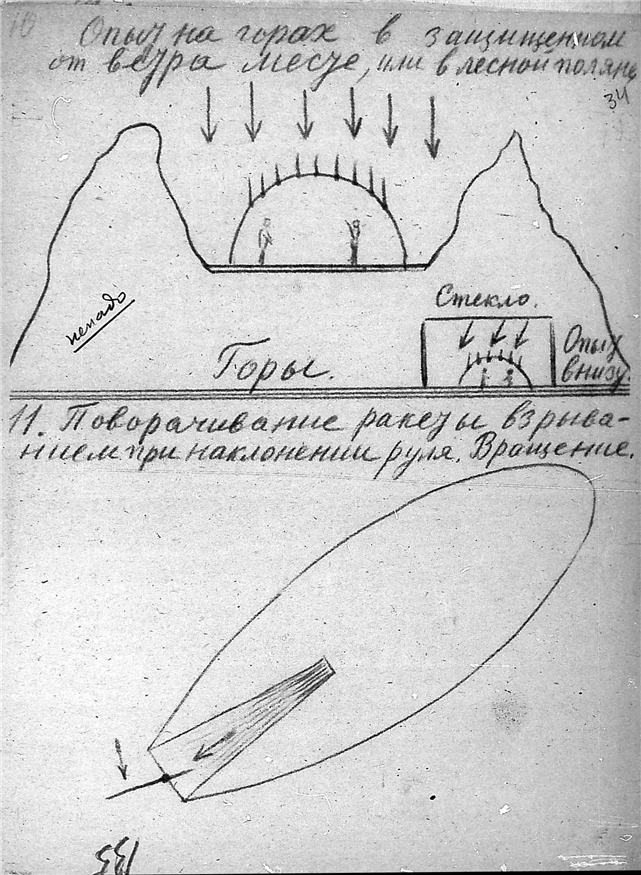 10 Опыт на горах в защищенном
от ветра месте, или в лесной поляне
34
Стекло.
ненадо
Горы.
Опыт
внизу.
11. Поворачивание ракеты взрыва-
нием при наклонении руля. Вращение.
133